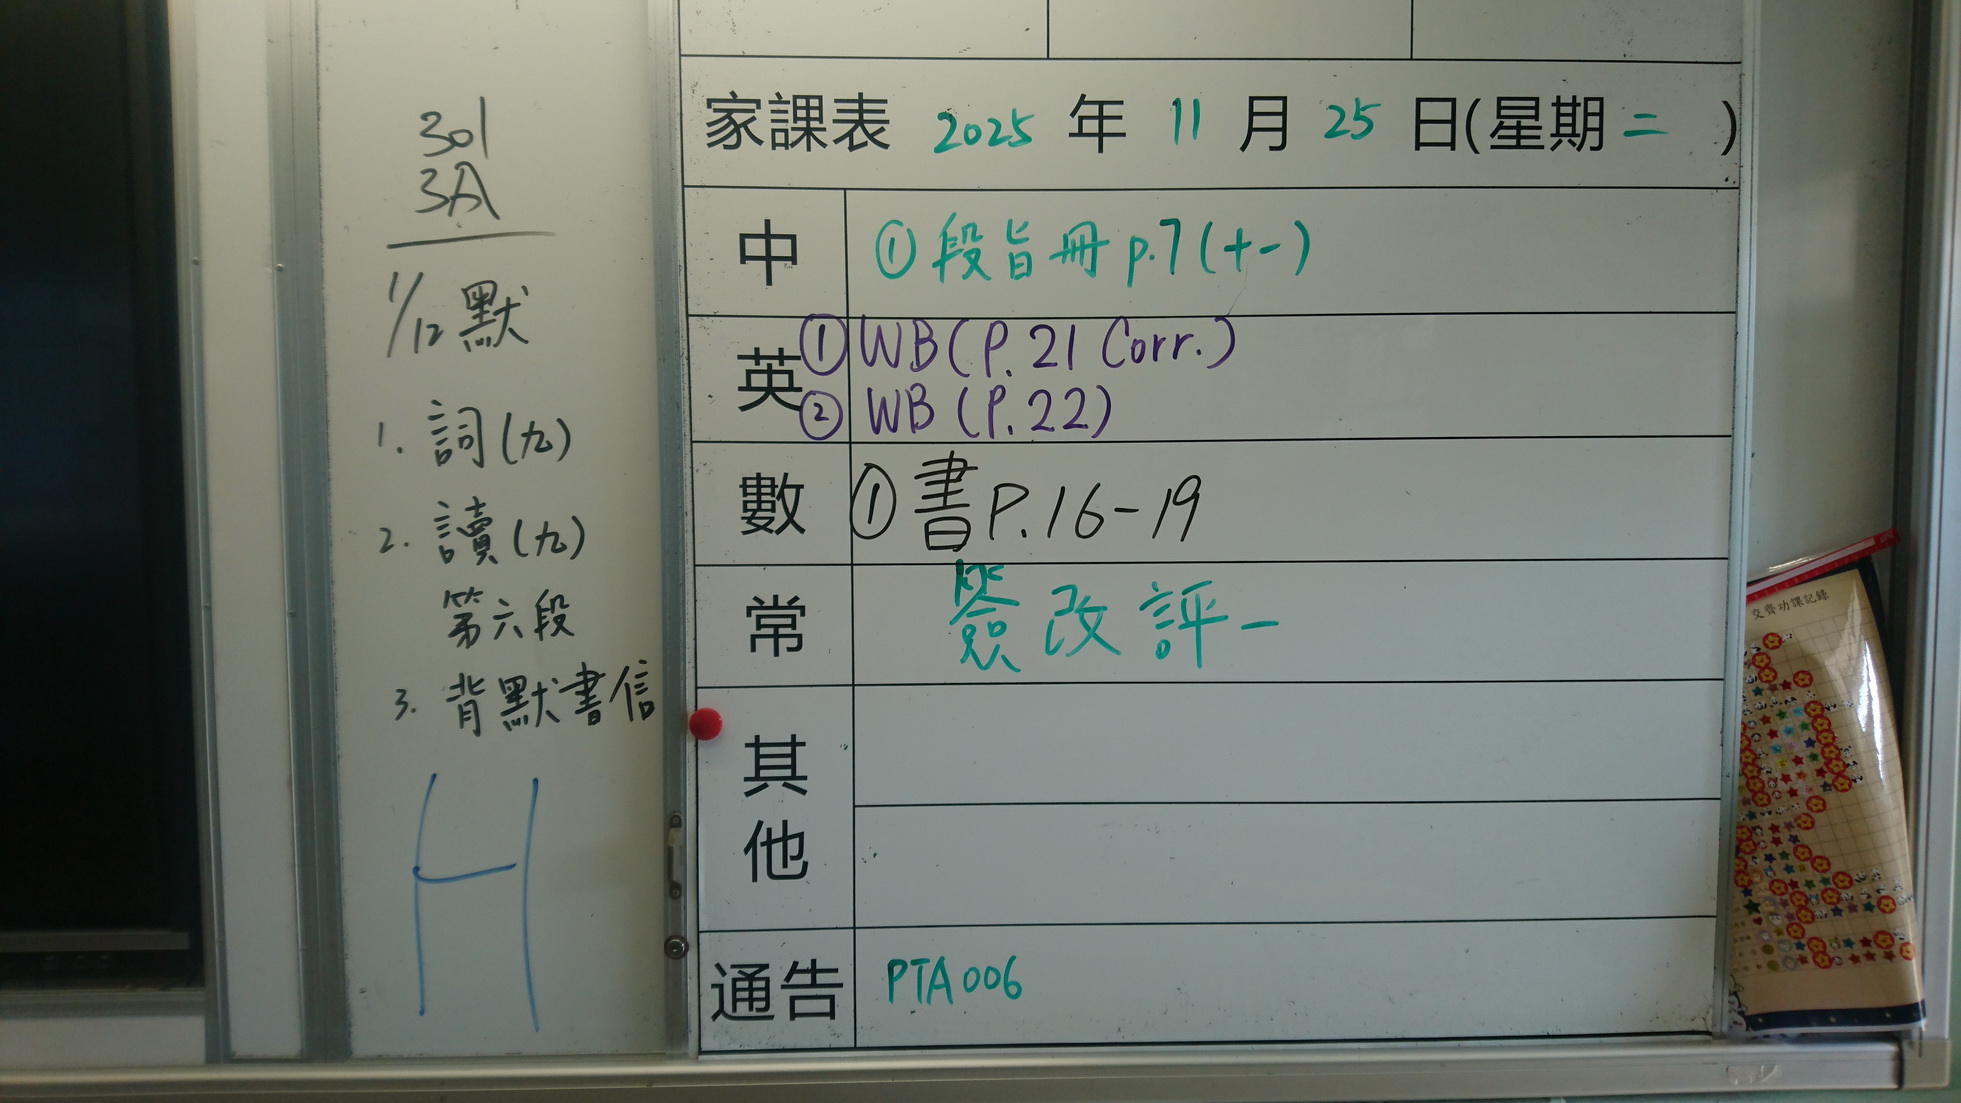 301
3A
1/12 默
1. 詞(九)
2. 讀(九)
第六段
3. 背默書信
H
家課表 2025 年 11 月 25 日(星期二 )
中 ①段旨冊 p.7(十一)
英 ①WB(P.21 Corr.)
②WB (P.22)
數 ①書P.16-19
常 簽改評一
其他
通告 PTA006
交齊功課記錄